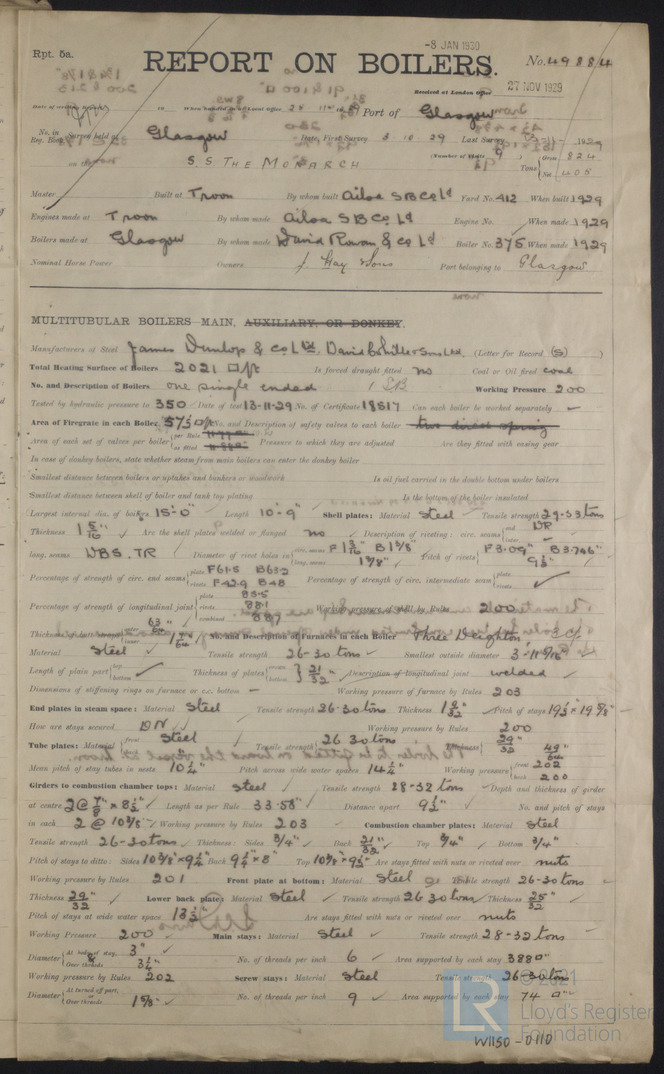 Rpt. 5a.
-8 JAN 1930
REPORT ON BOILERS.
No. 49884
Received at London Office 27 NOV 1929
Date of writing Report When handed in at Local Office Port of Glasgow
No. in Reg. Book. Survey held at Glasgow Date, First Survey 3 10 29 Last Survey 1929
on the S.S. THE MONARCH (Number of Visits 9) Tons Gross 824 Net 405
Master Built at Troon By whom built Ailsa S B Co Ld Yard No. 412 When built 1929
Engines made at Troon By whom made Ailsa S B Co Ld Engine No. When made 1929
Boilers made at Glasgow By whom made David Rowan & Co Ld Boiler No. 375 When made 1929
Nominal Horse Power Owners J Hay & Sons Port belonging to Glasgow
MULTITUBULAR BOILERS MAIN, AUXILIARY, OR DONKEY.
Manufacturers of Steel James Dunlop & Co Ltd. David Colville & Sons Ltd. (Letter for Record (S) )
Total Heating Surface of Boilers 2021 □/ft Is forced draught fitted no Coal or Oil fired coal
No. and Description of Boilers one single ended 1 SB Working Pressure 200
Tested by hydraulic pressure to 350 Date of test 13-11-29 No. of Certificate 18517 Can each boiler be worked separately
Area of Firegrate in each Boiler 57.5 □/ft No. and Description of safety valves to each boiler two direct spring
Area of each set of valves per boiler per Rule as fitted Pressure to which they are adjusted Are they fitted with easing gear
In case of donkey boilers, state whether steam from main boilers can enter the donkey boiler
Smallest distance between boilers or uptakes and bunkers or woodwork Is oil fuel carried in the double bottom under boilers
Smallest distance between shell of boiler and tank top plating Is the bottom of the boiler insulated
Largest internal dia. of boilers 15'-0" Length 10'-9" Shell plates: Material Steel Tensile strength 29-33 tons
Thickness 1 5/16" Are the shell plates welded or flanged no Description of riveting: circ. seams end DR
long. seams DBS. TR Diameter of rivet holes in circ. seams F 1 3/16" B 1 3/8" long. seams 1 3/8" Pitch of rivets F 3.09" B 3.746" 9 1/2"
Percentage of strength of circ. end seams plate F 61.5 B 63.2 rivets F 42.9 B 48 Percentage of strength of circ. intermediate seam plate rivets
Percentage of strength of longitudinal joint plate 85.5 rivets 88.1 combined 88.7 Working pressure of shell by Rules 200
Thickness of butt straps No. and Description of Furnaces in each Boiler Three Deighton 3 C.F.
Material Steel Tensile strength 26-30 tons Smallest outside diameter 3'-11 9/16"
Length of plain part top bottom Thickness of plates crown bottom 21/32" Description of longitudinal joint welded
Dimensions of stiffening rings on furnace or c.c. bottom Working pressure of furnace by Rules 203
End plates in steam space: Material Steel Tensile strength 26-30 tons Thickness 1 9/32" Pitch of stays 19 1/2" x 19 5/8"
How are stays secured DN Working pressure by Rules 200
Tube plates: Material front back Steel Tensile strength 26 30 tons Thickness 29/32 49/64
Mean pitch of stay tubes in nests 10 1/4" Pitch across wide water spaces 14 1/2" Working pressure front 202 back 200
Girders to combustion chamber tops: Material Steel Tensile strength 28-32 tons Depth and thickness of girder
at centre 2 @ 7/8" x 8 1/2" Length as per Rule 33.58" Distance apart 9 1/2" No. and pitch of stays
in each 2 @ 10 3/8" Working pressure by Rules 203 Combustion chamber plates: Material Steel
Tensile strength 26-30 tons Thickness: Sides 3/4" Back 21/32" Top 3/4" Bottom 3/4"
Pitch of stays to ditto: Sides 10 3/8" x 9 1/2" Back 9 1/4" x 8" Top 10 3/8" x 9 1/2" Are stays fitted with nuts or riveted over nuts
Working pressure by Rules 201 Front plate at bottom: Material Steel Tensile strength 26-30 tons
Thickness 29/32" Lower back plate: Material Steel Tensile strength 26 30 tons Thickness 25/32"
Pitch of stays at wide water space 13 1/2" Are stays fitted with nuts or riveted over nuts
Working Pressure 200 Main stays: Material Steel Tensile strength 28-32 tons
Diameter At body of stay, or Over threads 3" 3 1/4" No. of threads per inch 6 Area supported by each stay 388 □"
Working pressure by Rules 202 Screw stays: Material Steel Tensile strength 26-30 tons
Diameter At turned off part, or Over threads 1 5/8" No. of threads per inch 9 Area supported by each stay 74 □"
© 2021
LR Lloyd's Register
Foundation
W1150-0110